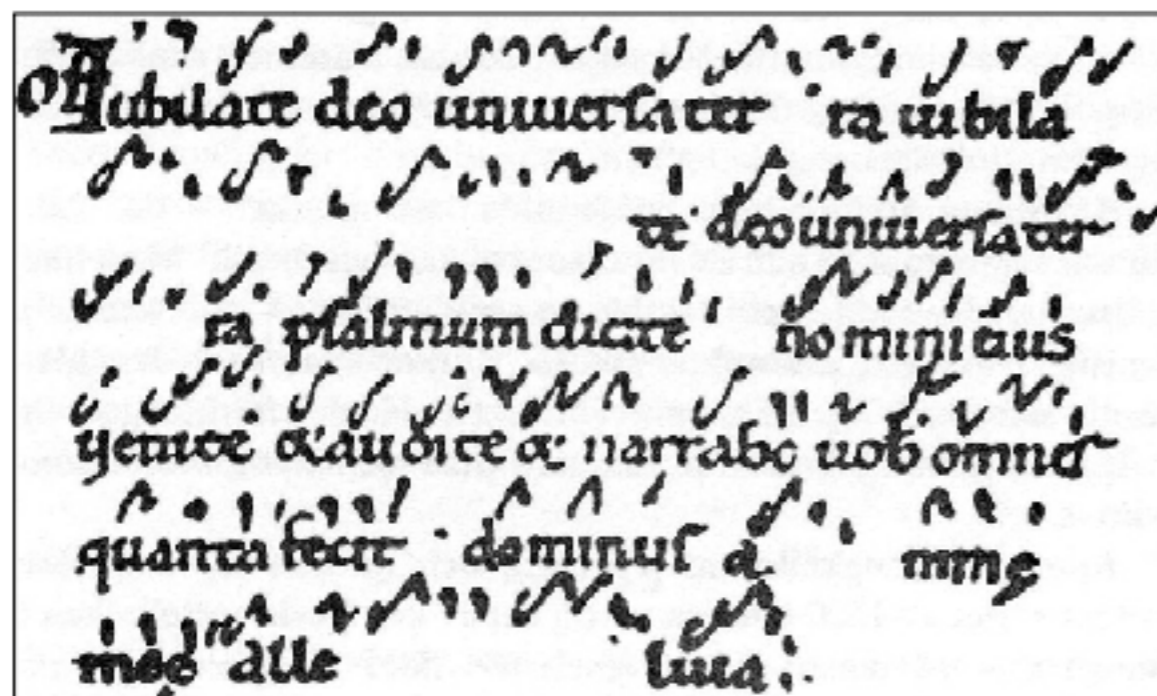 Off Iubilate deo uniuersa ter ra iubila
te deo uniuersa ter
ra psalmum dicite nomini eius
uenite & audite & narrabo uob omnes
quanta fecit dominus a nimę
meę alle luia.